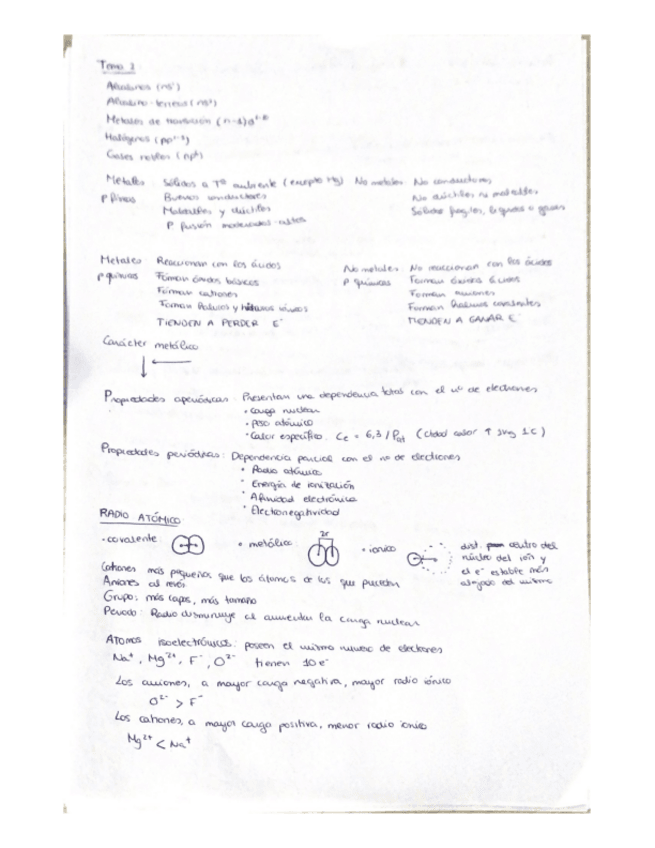 Tema 2
Alcalinos (ns¹)
Alcalino-terreos (ns²)
Metales de transición (n-1)d
Halógenos
Gases nobles (np⁶)
Metales Sólidos a Tª ambiente (excepto Hg) No metales No conductores
P físicas Buenos conductores No dúctiles ni maleables
Maleables y dúctiles Sólidos frágiles, líquidos o gases
P fusión moderadas-altas
Metales Reaccionan con los ácidos No metales No reaccionan con los ácidos
P químicas Forman óxidos básicos P químicas Forman óxidos ácidos
Forman cationes Forman aniones
Forman haluros y hidruros iónicos Forman haluros covalentes
TIENDEN A PERDER E⁻ TIENDEN A GANAR E⁻
Carácter metálico
Propiedades aperiódicas: Presentan una dependencia total con el nº de electrones
• Carga nuclear
• Peso atómico
• Calor específico Ce = 6,3 / Pat (ctdad calor ↑ 1mg 1C)
Propiedades periódicas: Dependencia parcial con el nº de electrones
• Radio atómico
• Energía de ionización
• Afinidad electrónica
• Electronegatividad
RADIO ATÓMICO
• covalente • metálico 2r • ionico dist. centro del
núcleo del ion y
el e⁻ estable más
alejado del mismo
Cationes más pequeños que los átomos de los que proceden
Aniones al revés
Grupo: más capas, más tamaño
Periodo: Radio disminuye al aumentar la carga nuclear
Átomos isoelectrónicos: poseen el mismo número de electrones
Na⁺, Mg²⁺, F⁻, O²⁻ tienen 10 e⁻
Los aniones, a mayor carga negativa, mayor radio iónico
O²⁻ > F⁻
Los cationes, a mayor carga positiva, menor radio ionico
Mg²⁺ < Na⁺